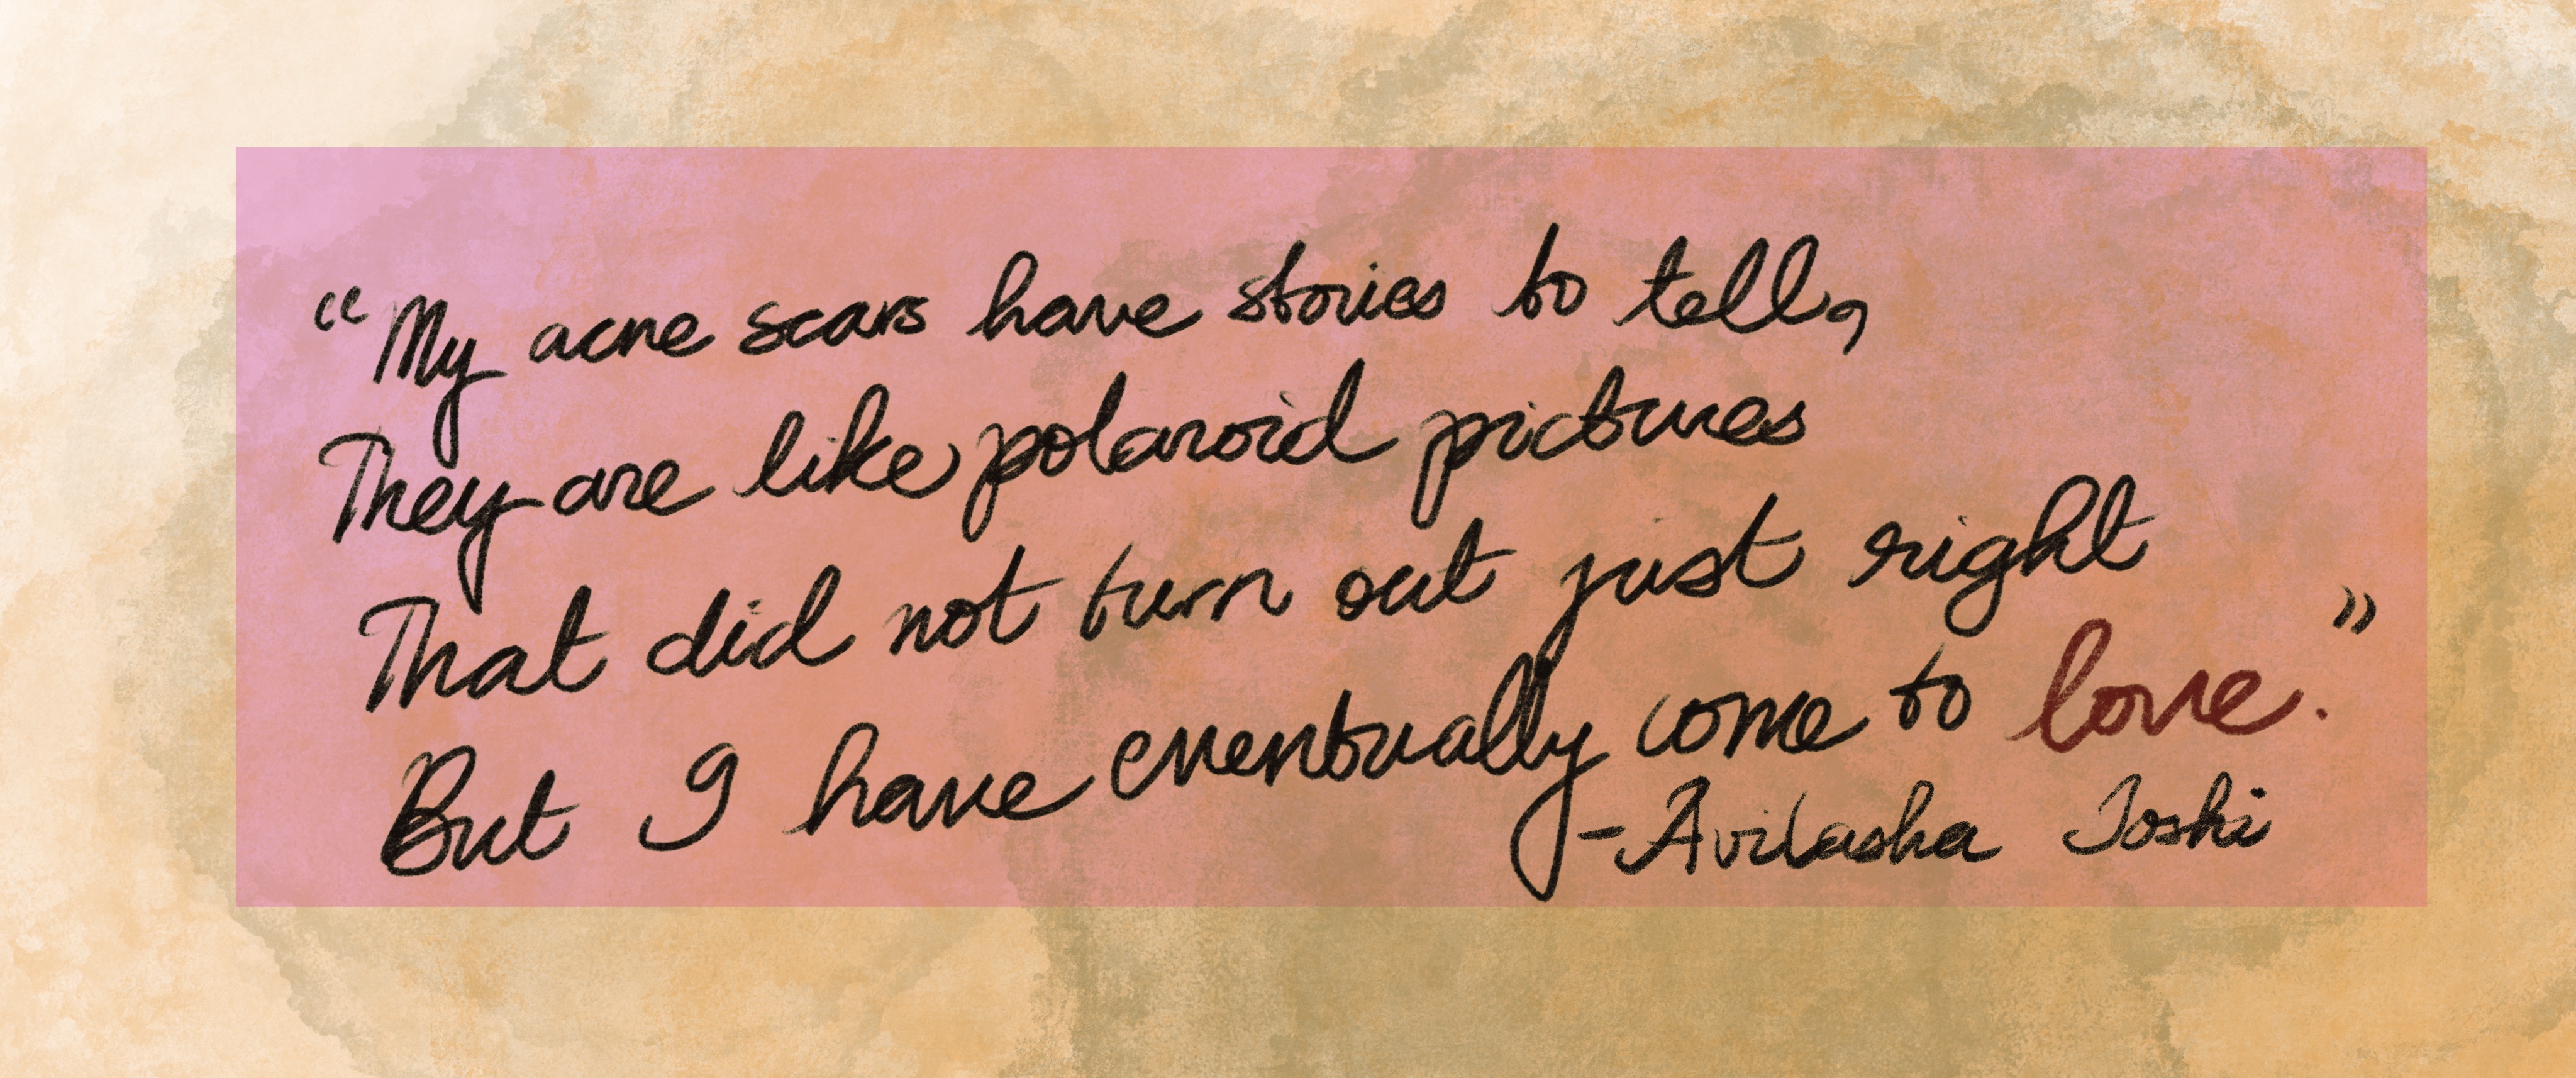 “My acne scars have stories to tell,
They are like polaroid pictures
That did not turn out just right
But I have eventually come to love.”
-Avilasha Joshi